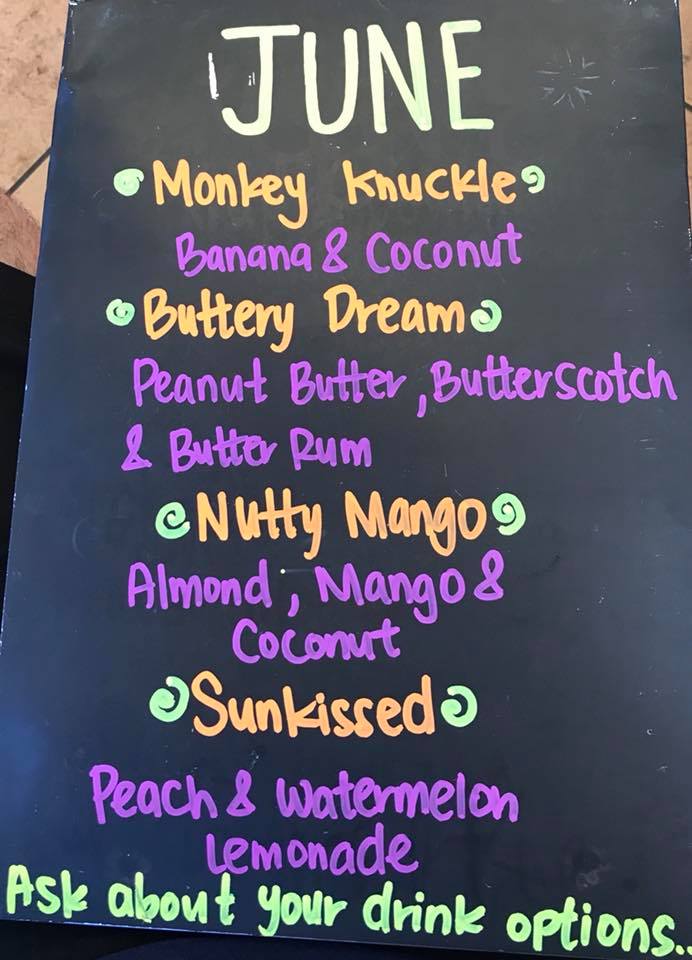 JUNE
Monkey Knuckle
Banana & Coconut
Buttery Dream
Peanut Butter, Butterscotch
& Butter Rum
Nutty Mango
Almond, Mango &
Coconut
Sunkissed
Peach & Watermelon
Lemonade
Ask about your drink options..